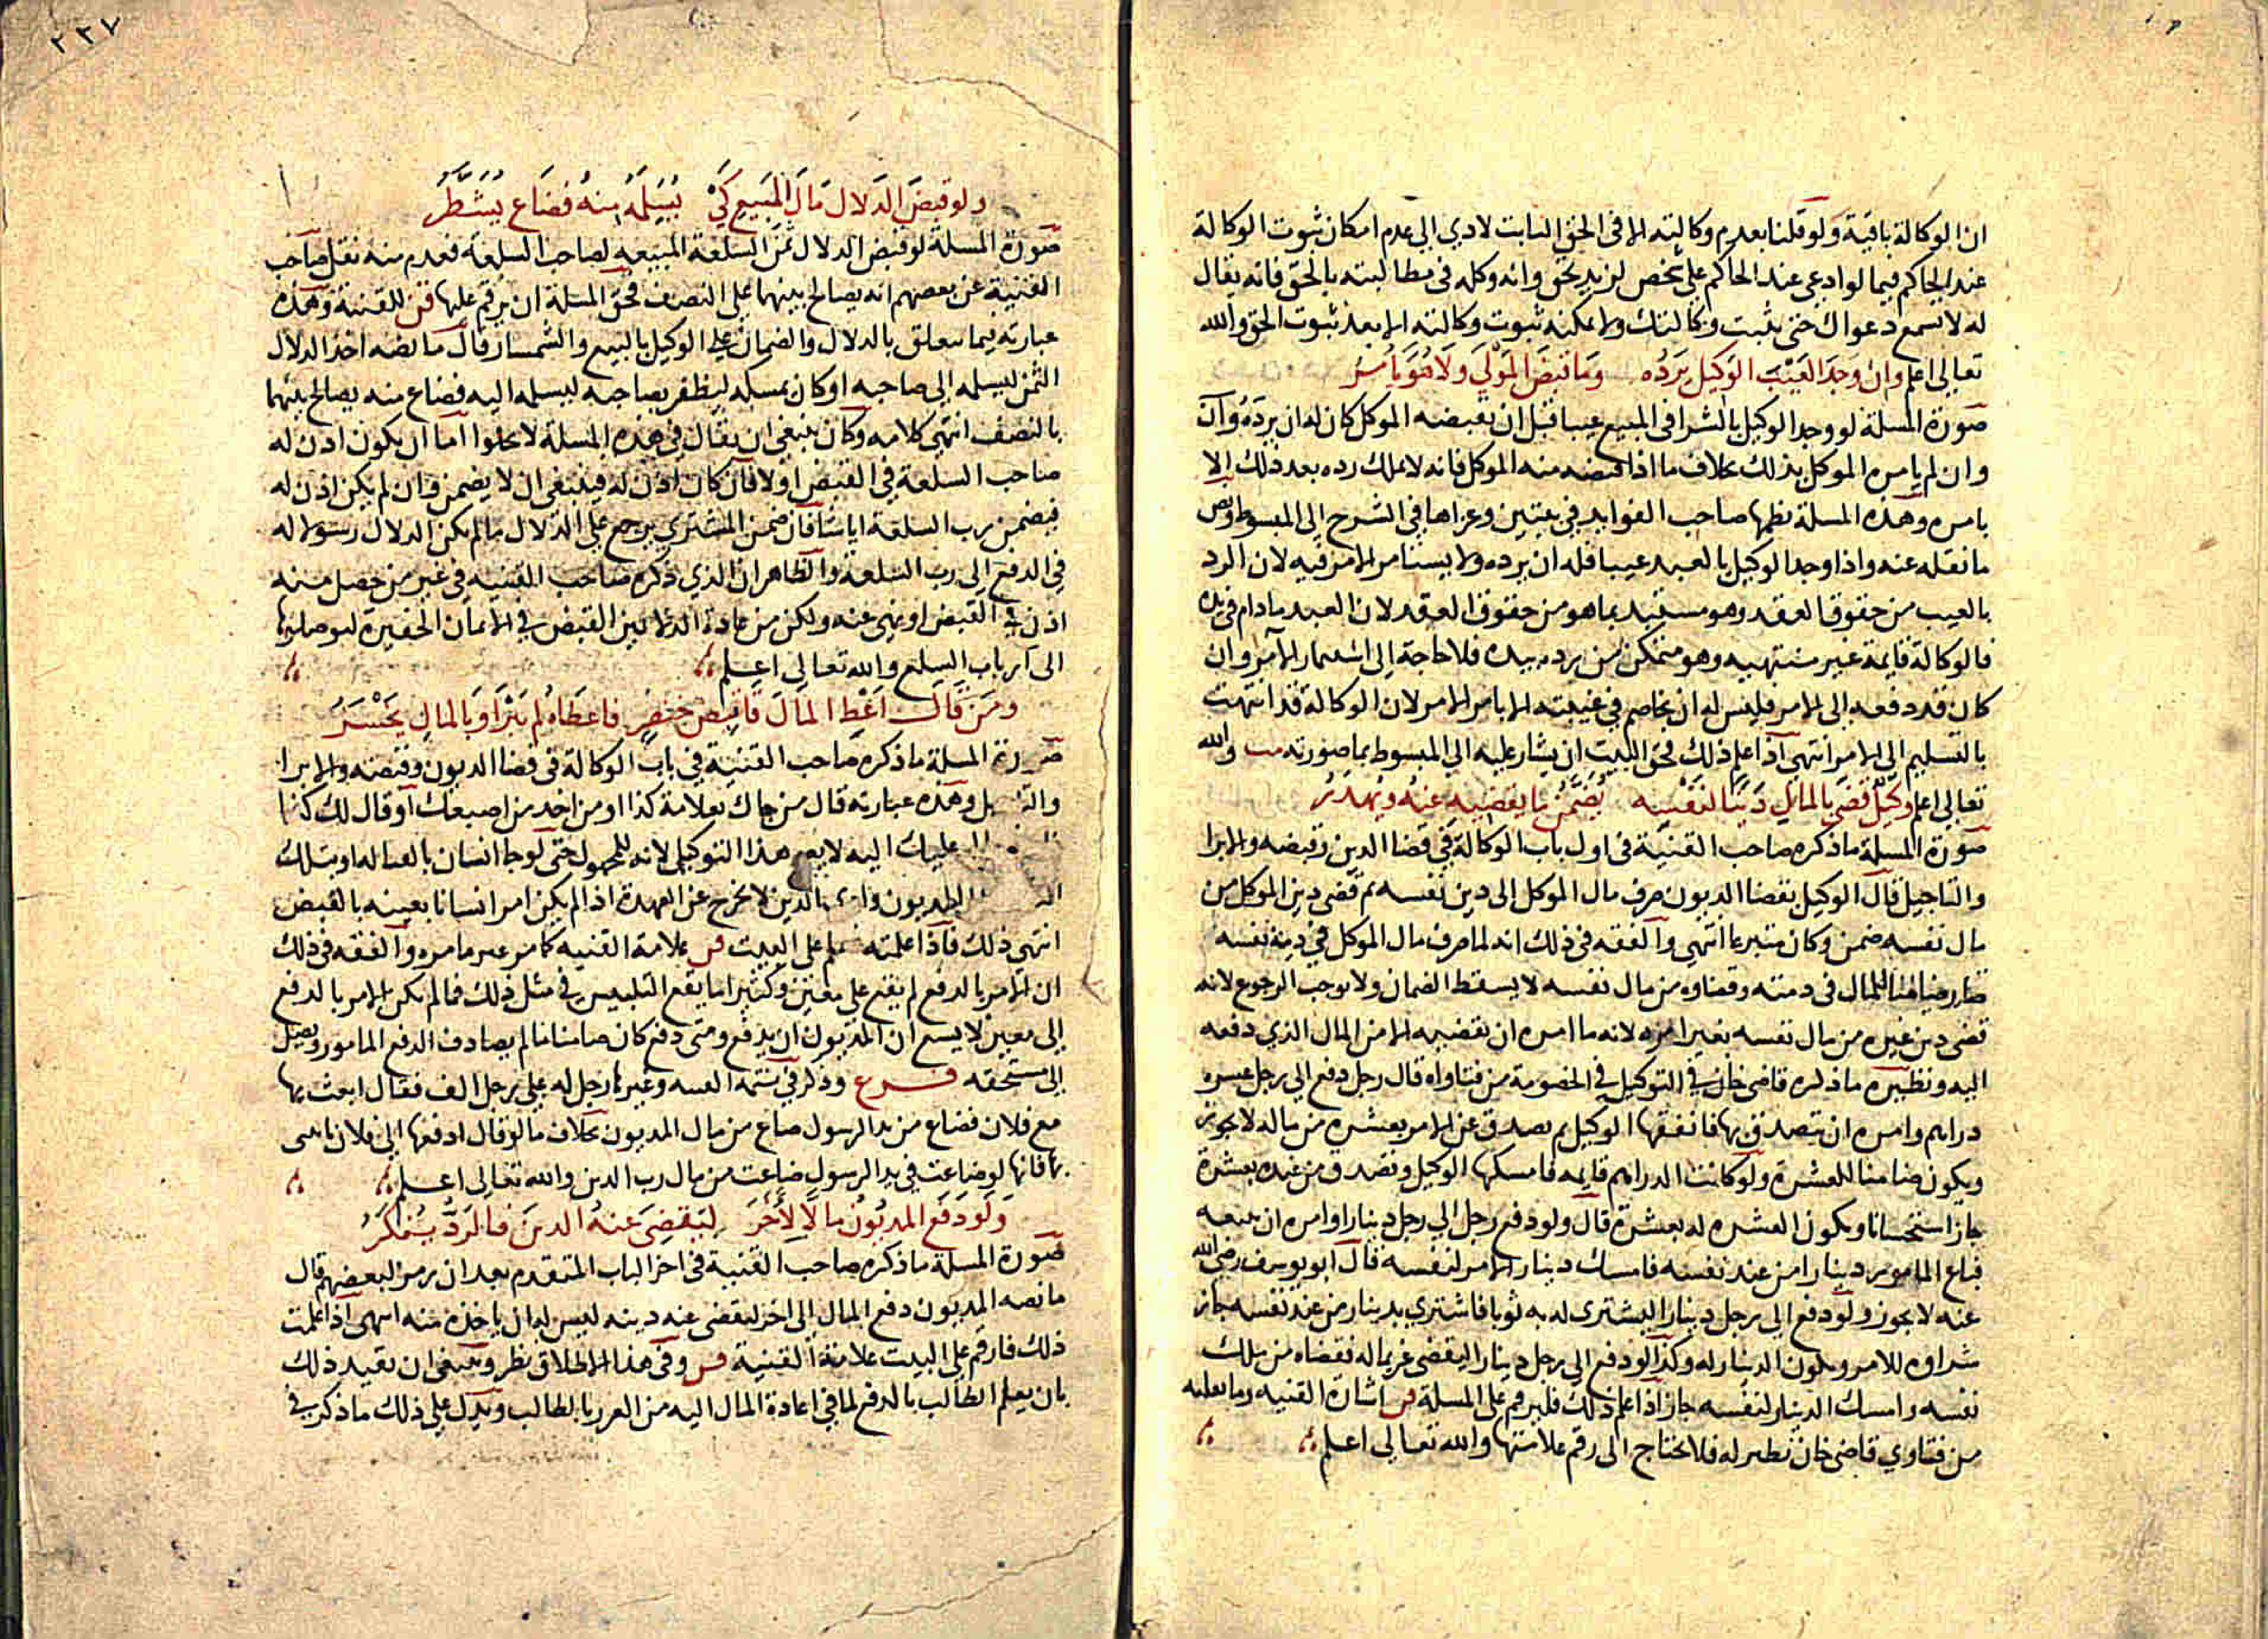 ان الوكالة باقية ولو قلنا بعدم وكالته الا فى الحق الثابت لادى الى عدم امكان ثبوت الوكالة
عند الحاكم فيما لو ادعى عند الحاكم على شخص لزيد بحق وانه وكله فى مطالبته بالحق فانه يقال
له لا تسمع دعواك حتى يثبت وكالتك ولا يمكنه ثبوت وكالته الا بعد ثبوت الحق والله
تعالى اعلم وان وجد العيب الوكيل يرده وما قبض المولي ولا هو يامر
صورة المسلة لو وجد الوكيل بالشرا فى المبيع عيبا قبل ان يقبضه الموكل كان له ان يرده وان
وان لم يامره الموكل بذلك بخلاف ما اذا قبضه منه الموكل فانه لا يملك رده بعد ذلك الا
بامره وهذه المسلة نظمها صاحب الفوايد في بيتين وعزاها في الشرح الى المبسوط ونص
ما نقله عنه واذا وجد الوكيل بالعبد عيبا فله ان يرده ولا يستامر الامر فيه لان الرد
بالعيب من حقوق العقد وهو مستبد بما هو من حقوق العقد لان العبد ما دام فى يده
فالوكالة قايمة غير منتهيه وهو متمكن من رده بيده فلا حاجة الى استيمار الآمر وان
كان قد دفعه الى الامر فليس له ان يخاصم فى عيبته الا بامر الامر لان الوكالة قد انتهت
بالتسليم الى الامر انتهى اذا علم ذلك فحق البيت ان يشار عليه الى المبسوط بما صورته مب والله
تعالى اعلم وكيل قضى بالمال دينا لنفسه يضمن ما يقضيه عنه ويهدر
صورة المسلة ما ذكره صاحب القنية فى اول باب الوكالة فى قضا الدين وقبضه والابرا
والتاجيل قال الوكيل بقضا الديون صرف مال الموكل الى دين نفسه ثم قضى دين الموكل من
مال نفسه ضمن وكان متبرعا انتهى والفقه فى ذلك انه لما صرف مال الموكل فى دين نفسه
صار ضامنا للمال فى ذمته وقضاوه من مال نفسه لا يسقط الضمان ولا يوجب الرجوع لانه
قضى دين غيره من مال نفسه بغير امره لانه ما امره ان يقضيه الا من المال الذي دفعه
اليه ونظيره ما ذكره قاضى خان فى التوكيل فى الخصومة من فتاواه قال رجل دفع الى رجل عشره
دراهم وامره ان يتصدق بها فانفقها الوكيل ثم تصدق عن الامر بعشره من ماله لا يجوز
ويكون ضامنا للعشرة ولو كانت الدراهم قايمه فامسكها الوكيل وتصدق من عنده بعشرة
جاز استحسانا ويكون العشره له بعشرة قال ولو دفع رجل الى رجل دينارا وامره ان يبيعه
فباع المامور دينارا من عند نفسه فامسك دينار الامر لنفسه قال ابو يوسف رضي الله
عنه لا يجوز ولو دفع الى رجل دينارا ليشترى له به ثوبا فاشترى بدينار من عند نفسه جاز
شراوه للامر ويكون الدينار له وكذا لو دفع الى رجل دينارا ليقضى غريما له فقضاه من ملك
نفسه وامسك الدينار لنفسه جاز اذا علم ذلك فليرقم على المسلة قن اشارة القنيه وما نقلته
من فتاوي قاضى خان نظير له فلا يحتاج الى رقم علامتها والله تعالى اعلم
٢٣٧
ولو قبض الدلال مال المبيع كي يسلمه منه فضاع يشطر
صورة المسلة لو قبض الدلال ثمن السلعة المبيعه لصاحب السلعة فعدم منه نقل صاحب
القنية عن بعضهم انه يصالح بينهما على النصف فحق المسلة ان يرقم عليها قن للقنية وهذه
عبارته فيما يتعلق بالدلال والضمان على الوكيل بالبيع والسمسار قال ما نصه اخذ الدلال
الثمن ليسلمه الى صاحبه او كان يمسكه ليظفر بصاحبه ليسلمه اليه فضاع منه يصالح بينهما
بالنصف انتهى كلامه وكان ينبغى ان يقال فى هذه المسلة لا يخلوا اما ان يكون اذن له
صاحب السلعة فى القبض اولا فان كان اذن له فينبغى ان لا يضمن وان لم يكن اذن له
فيضمن رب السلعة ايا شا فان ضمن المشتري يرجع على الدلال ما لم يكن الدلال رسولا له
فى الدفع الى رب السلعة والظاهر ان الذي ذكره صاحب القنيه فى غير من حصل منه
اذن فى القبض او نهى عنه ولكن من عادة الدلالين القبض فى الاثمان الحقيرة ليوصلوها
الى ارباب السلع والله تعالى اعلم
ومن قال اعط المال قابض خنصر فاعطاه لم يبرا وبالمال يخسر
صورة المسلة ما ذكره صاحب القنية فى باب الوكالة فى قضا الديون وقبضه والابرا
وهذه عبارته قال من جاك بعلامة كذا او من اخذ من اصبعك او قال لك كذا
عليك اليه لا يصح هذا التوكيل لانه للمجهول حتى لو جا انسان بالعلامه او بتلك
المديون وادى الدين لا يخرج عن العهدة اذا لم يكن امر انسانا بعينه بالقبض
انتهى ذلك فاذا علمته فعلم على البيت قن علامة القنيه كما مر غير ما مره والفقه فى ذلك
ان الامر بالدفع لم يقع على معين وكثيرا ما يقع التلبيس فى مثل ذلك فما لم يكن الامر بالدفع
الى معين لا يسع ان المديون ان يدفع ومتى دفع كان ضامنا ما لم يصادف الدفع المامور ويصل
الى مستحقه فرع وذكر فى تتمه القنيه وغيرها رجل له على رجل الف فقال ابعث بها
مع فلان فضاع من يد الرسول ضاع من مال المديون بخلاف ما لو قال ادفعها الى فلان
بها فانها لو ضاعت فى يد الرسول ضاعت من مال رب الدين والله تعالى اعلم
ولو دفع المديون مالا لاخر ليقضى عنه الدين فالرد ينكر
صورة المسلة ما ذكره صاحب القنية فى اخر الباب المتقدم بعد ان رمز لبعضهم قال
ما نصه المديون دفع المال الى اخر ليقضى عنه دينه ليس له ان ياخذه منه انتهى اذا علمت
ذلك فارقم على البيت علامة القنية قن وفى هذا الاطلاق نظر وينبغى ان يقيد ذلك
بان يعلم الطالب بالدفع لما فى اعادة المال اليه من الغرر بالطالب ويدل على ذلك ما ذكر فى